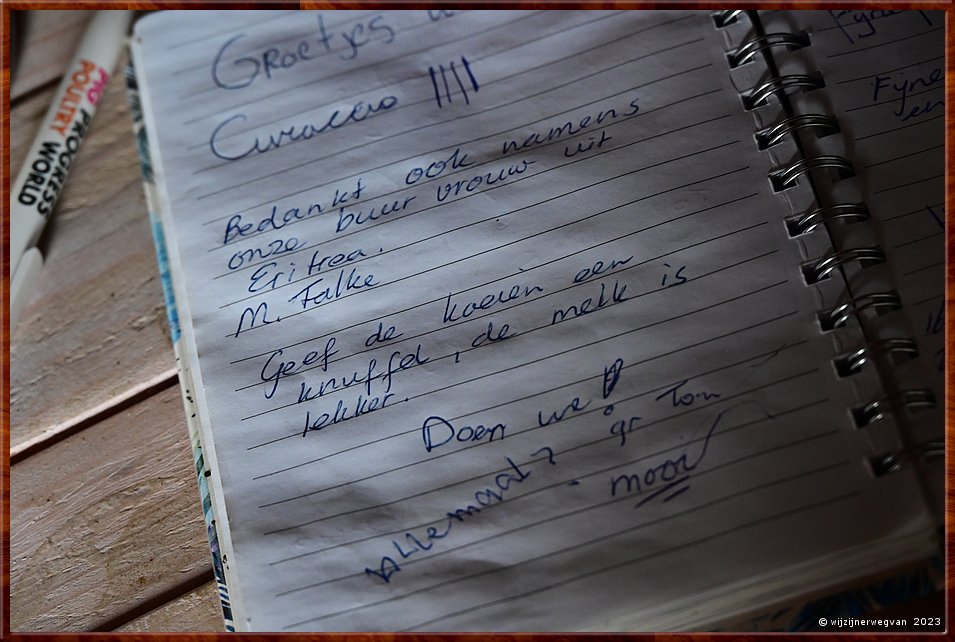 Groetjes
Curaccao !!!!!
Bedankt ook namens
onze buur vrouw uit
Eritrea.
M. Falke
Geef de koeien een
knuffel, de melk is
lekker.
Doen we!
gr Tom
Allemaal
mooi
Fyne
en
PIG PROGRESS
POULTRY
WORLD
© wijzijnerwegvan 2023